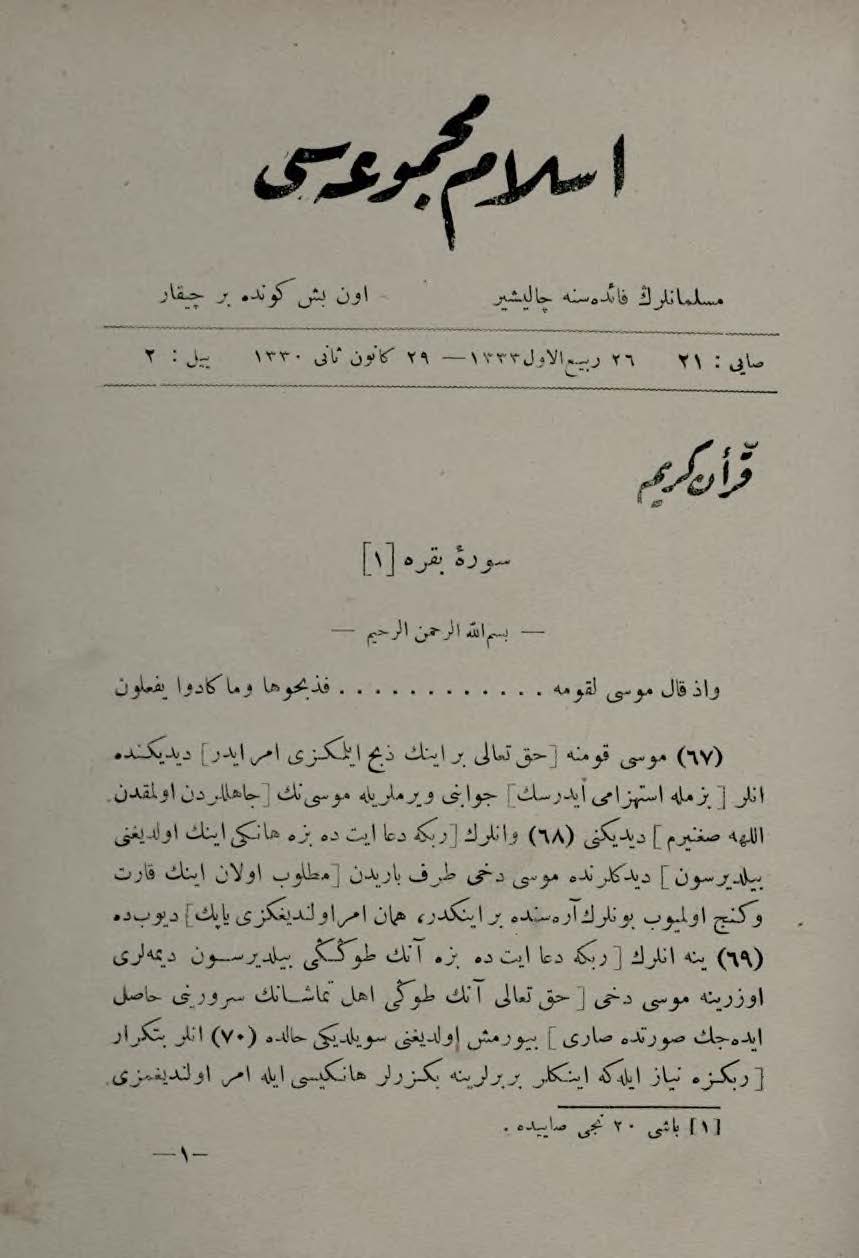 اسلام مجموعه‌سی
مسلمانلرڭ فائده‌سنه چالیشیر - اون بش كونده بر چیقار
صایی : ٢١ ٢٦ ربیع‌الاول ١٣٣٣ — ٢٩ كانون ثانی ١٣٣٠ ییل : ٢
قرأن كریم
سورهٔ بقره [١]
— بسم‌الله الرحمن الرحیم —
واذ قال موسی لقومه . . . . . . . . . . . . فذبحوها وما كادوا یفعلون
(٦٧) موسی قومنه [حق تعالی بر اینك ذبح ایتمكزی امر ایدر] دیدیكنده
انلر [بزمله استهزامی ایدرسك] جوابنی ویرملریله موسی‌نك [جاهللردن اولمقدن
اللهه صغنیرم] دیدیكنی (٦٨) وانلرك [ربكه دعا ایت ده بزه هانكی اینك اولدیغنی
بیلدیرسون] دیدكلرنده موسی دخی طرف باریدن [مطلوب اولان اینك قارت
وكنج اولمیوب بونلرك آره‌سنده بر اینكدر، همان امر اولندیغكزی یاپك] دیوب‌ده
(٦٩) ینه انلرك [ربكه دعا ایت ده بزه آنك طوڭنی بیلدیرسون دیمه‌لری
اوزرینه موسی دخی [حق تعالی آنك طوكی اهل تماشانك سرورینی حاصل
ایده‌جك صورتده صاری] بیورمش اولدیغنی سویلدیكی حالده (٧٠) انلر بتكرار
[ربكزه نیاز ایله‌كه اینكلر بربرلرینه بكزرلر هانكیسی ایله امر اولندیغمزی
[١] باشی ٢٠ نجی صاییده .
—١—